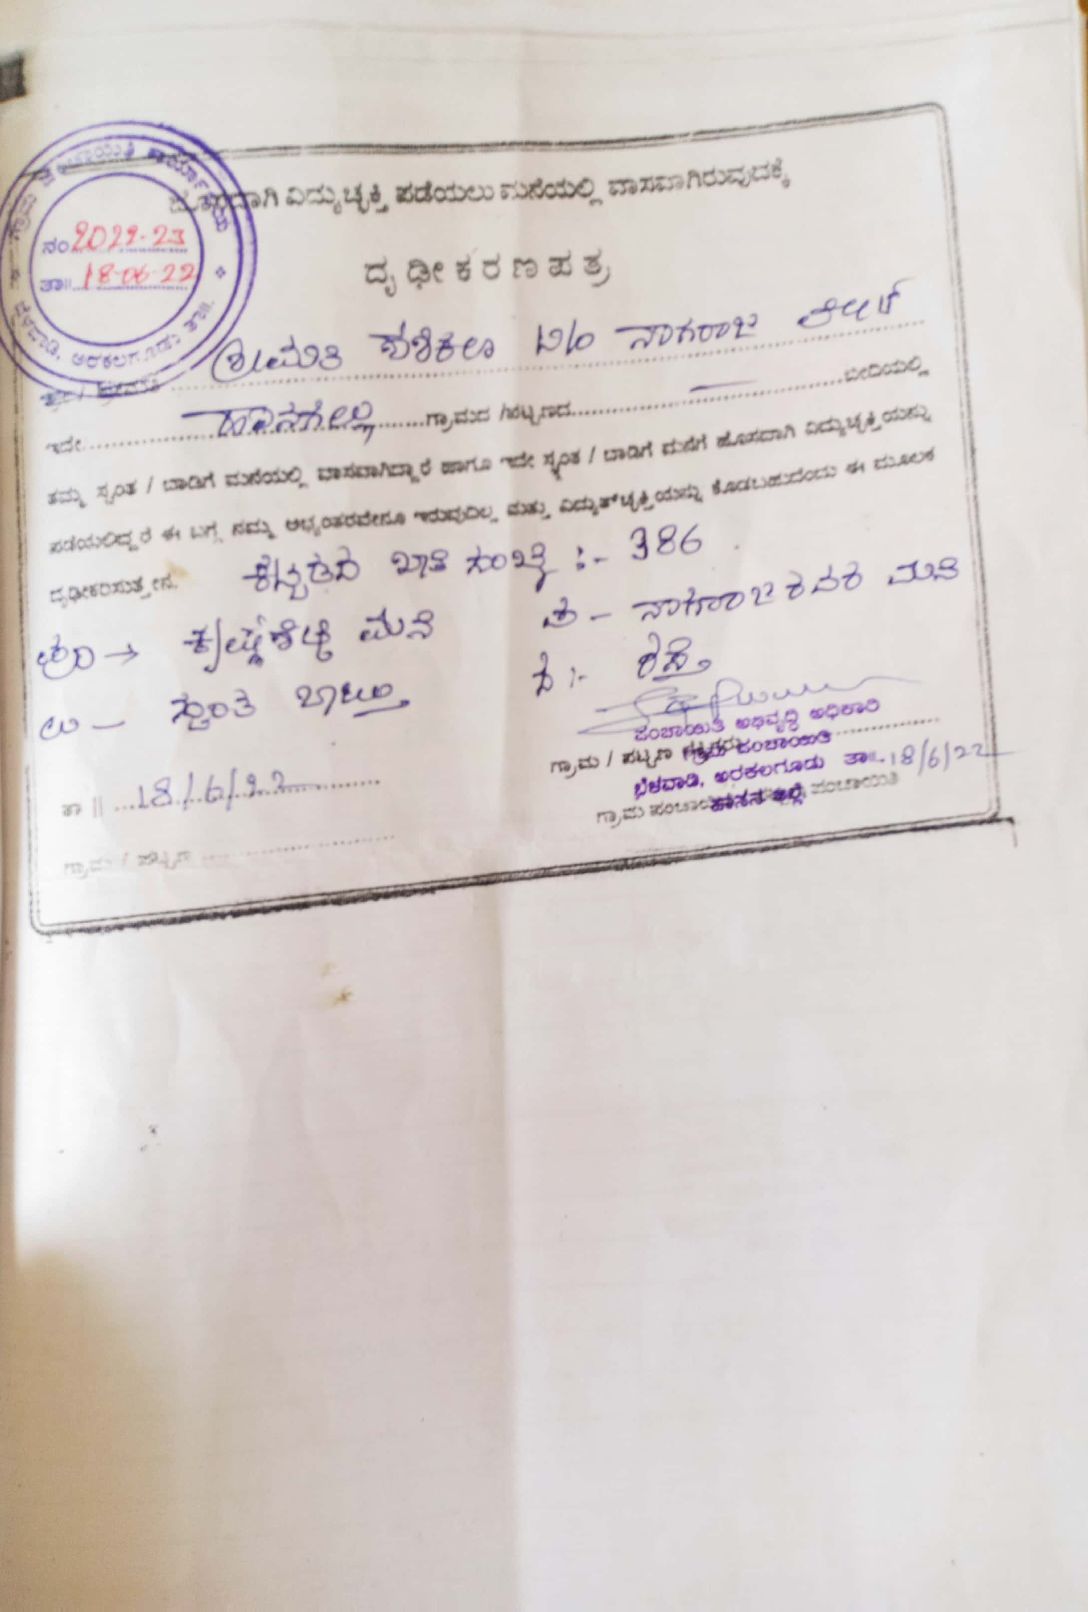 ಗ್ರಾಮ ಪಂಚಾಯಿತಿ ಕಾರ್ಯಾಲಯ
ನಂ 2022-23
ತಾ॥ 18-06-22
ಬೆಳವಾಡಿ, ಅರಕಲಗೂಡು ತಾ॥.
ಹೊಸದಾಗಿ ವಿದ್ಯುಚ್ಛಕ್ತಿ ಪಡೆಯಲು ಮನೆಯಲ್ಲಿ ವಾಸವಾಗಿರುವುದಕ್ಕೆ
ದೃಢೀಕರಣಪತ್ರ
ಶ್ರೀ / ಶ್ರೀಮತಿ ಶ್ರೀಮತಿ ಶಶಿಕಲಾ ನಾಗರಾಜ
ಇದೇ ಗ್ರಾಮದ /ಪಟ್ಟಣದ ಬೀದಿಯಲ್ಲಿ
ತಮ್ಮ ಸ್ವಂತ / ಬಾಡಿಗೆ ಮನೆಯಲ್ಲಿ ವಾಸವಾಗಿದ್ದಾರೆ ಹಾಗೂ ಇದೇ ಸ್ವಂತ / ಬಾಡಿಗೆ ಮನೆಗೆ ಹೊಸದಾಗಿ ವಿದ್ಯುಚ್ಛಕ್ತಿಯನ್ನು
ಪಡೆಯಲಿದ್ದರೆ ಈ ಬಗ್ಗೆ ನಮ್ಮ ಅಭ್ಯಂತರವೇನೂ ಇರುವುದಿಲ್ಲ ಮತ್ತು ವಿದ್ಯುತ್‌ಚ್ಛಕ್ತಿಯನ್ನು ಕೊಡಬಹುದೆಂದು ಈ ಮೂಲಕ
ದೃಢೀಕರಿಸುತ್ತೇನೆ. ಕಟ್ಟಡದ ಖಾತೆ ಸಂಖ್ಯೆ :- 386
ಮನೆ
ನಾಗರಾಜ ರವರ ಮನೆ
ಸ್ವಂತ
ದ :- ರಸ್ತೆ
ಪಂಚಾಯಿತಿ ಅಭಿವೃದ್ಧಿ ಅಧಿಕಾರಿ
ಗ್ರಾಮ / ಪಟ್ಟಣ
ಗ್ರಾಮ ಪಂಚಾಯಿತಿ
ತಾ || 18/6/22
ಬೆಳವಾಡಿ, ಅರಕಲಗೂಡು ತಾ॥. 18/6/22
ಗ್ರಾಮ ಪಂಚಾಯಿತಿ ಪಂಚಾಯಿತಿ
ಹಾಸನ ಜಿಲ್ಲೆ
ಗ್ರಾಮ / ಪಟ್ಟಣ